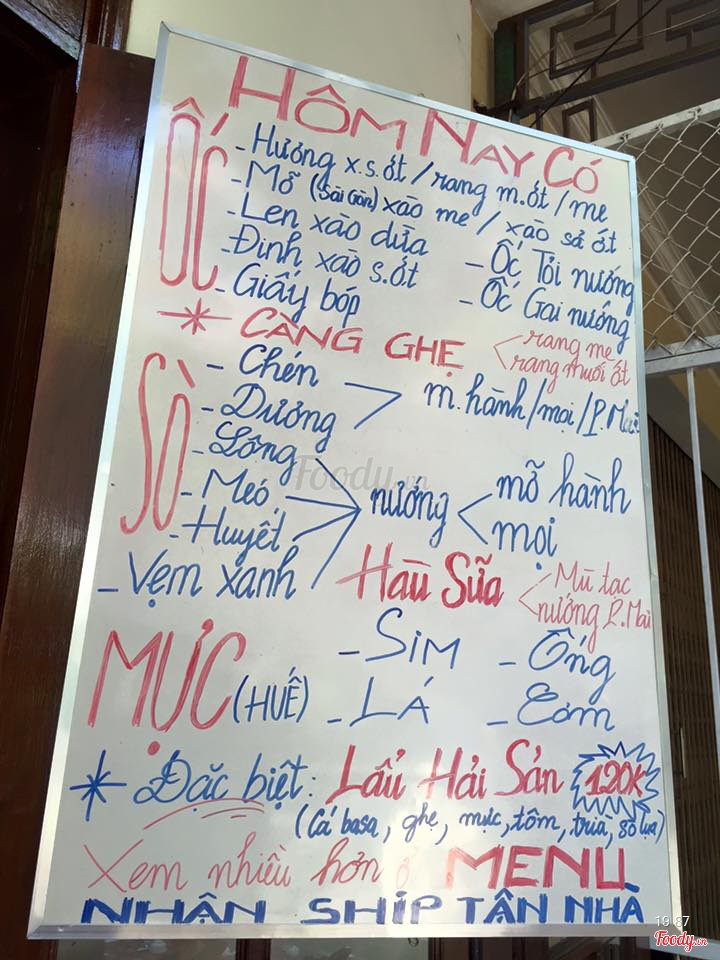 HÔM NAY CÓ
ỐC
- Hương x.s.ớt / rang m.ớt / me
- Mỡ (Sài Gòn) xào me / xào sả ớt
- Len xào dừa
- Đinh xào s.ớt
- Giấy bóp
- Ốc Tỏi nướng
- Ốc Gai nướng
* CÀNG GHẸ < rang me
rang muối ớt
SÒ
- Chén
- Dương
m.hành/mọi/P.Mai
- Lông
- Méo
- Huyết
- Vẹm xanh
nướng < mỡ hành
mọi
Hàu Sữa < Mù tạc
nướng P.Mai
MỰC (HUẾ)
- SIM
- Ống
- LÁ
- Cơm
* Đặc biệt: Lẩu Hải Sản 120K
(Cá basa, ghẹ, mực, tôm, trìa, sò lụa)
Xem nhiều hơn ở MENU
NHẬN SHIP TẬN NHÀ
Foody.vn
Foody.vn